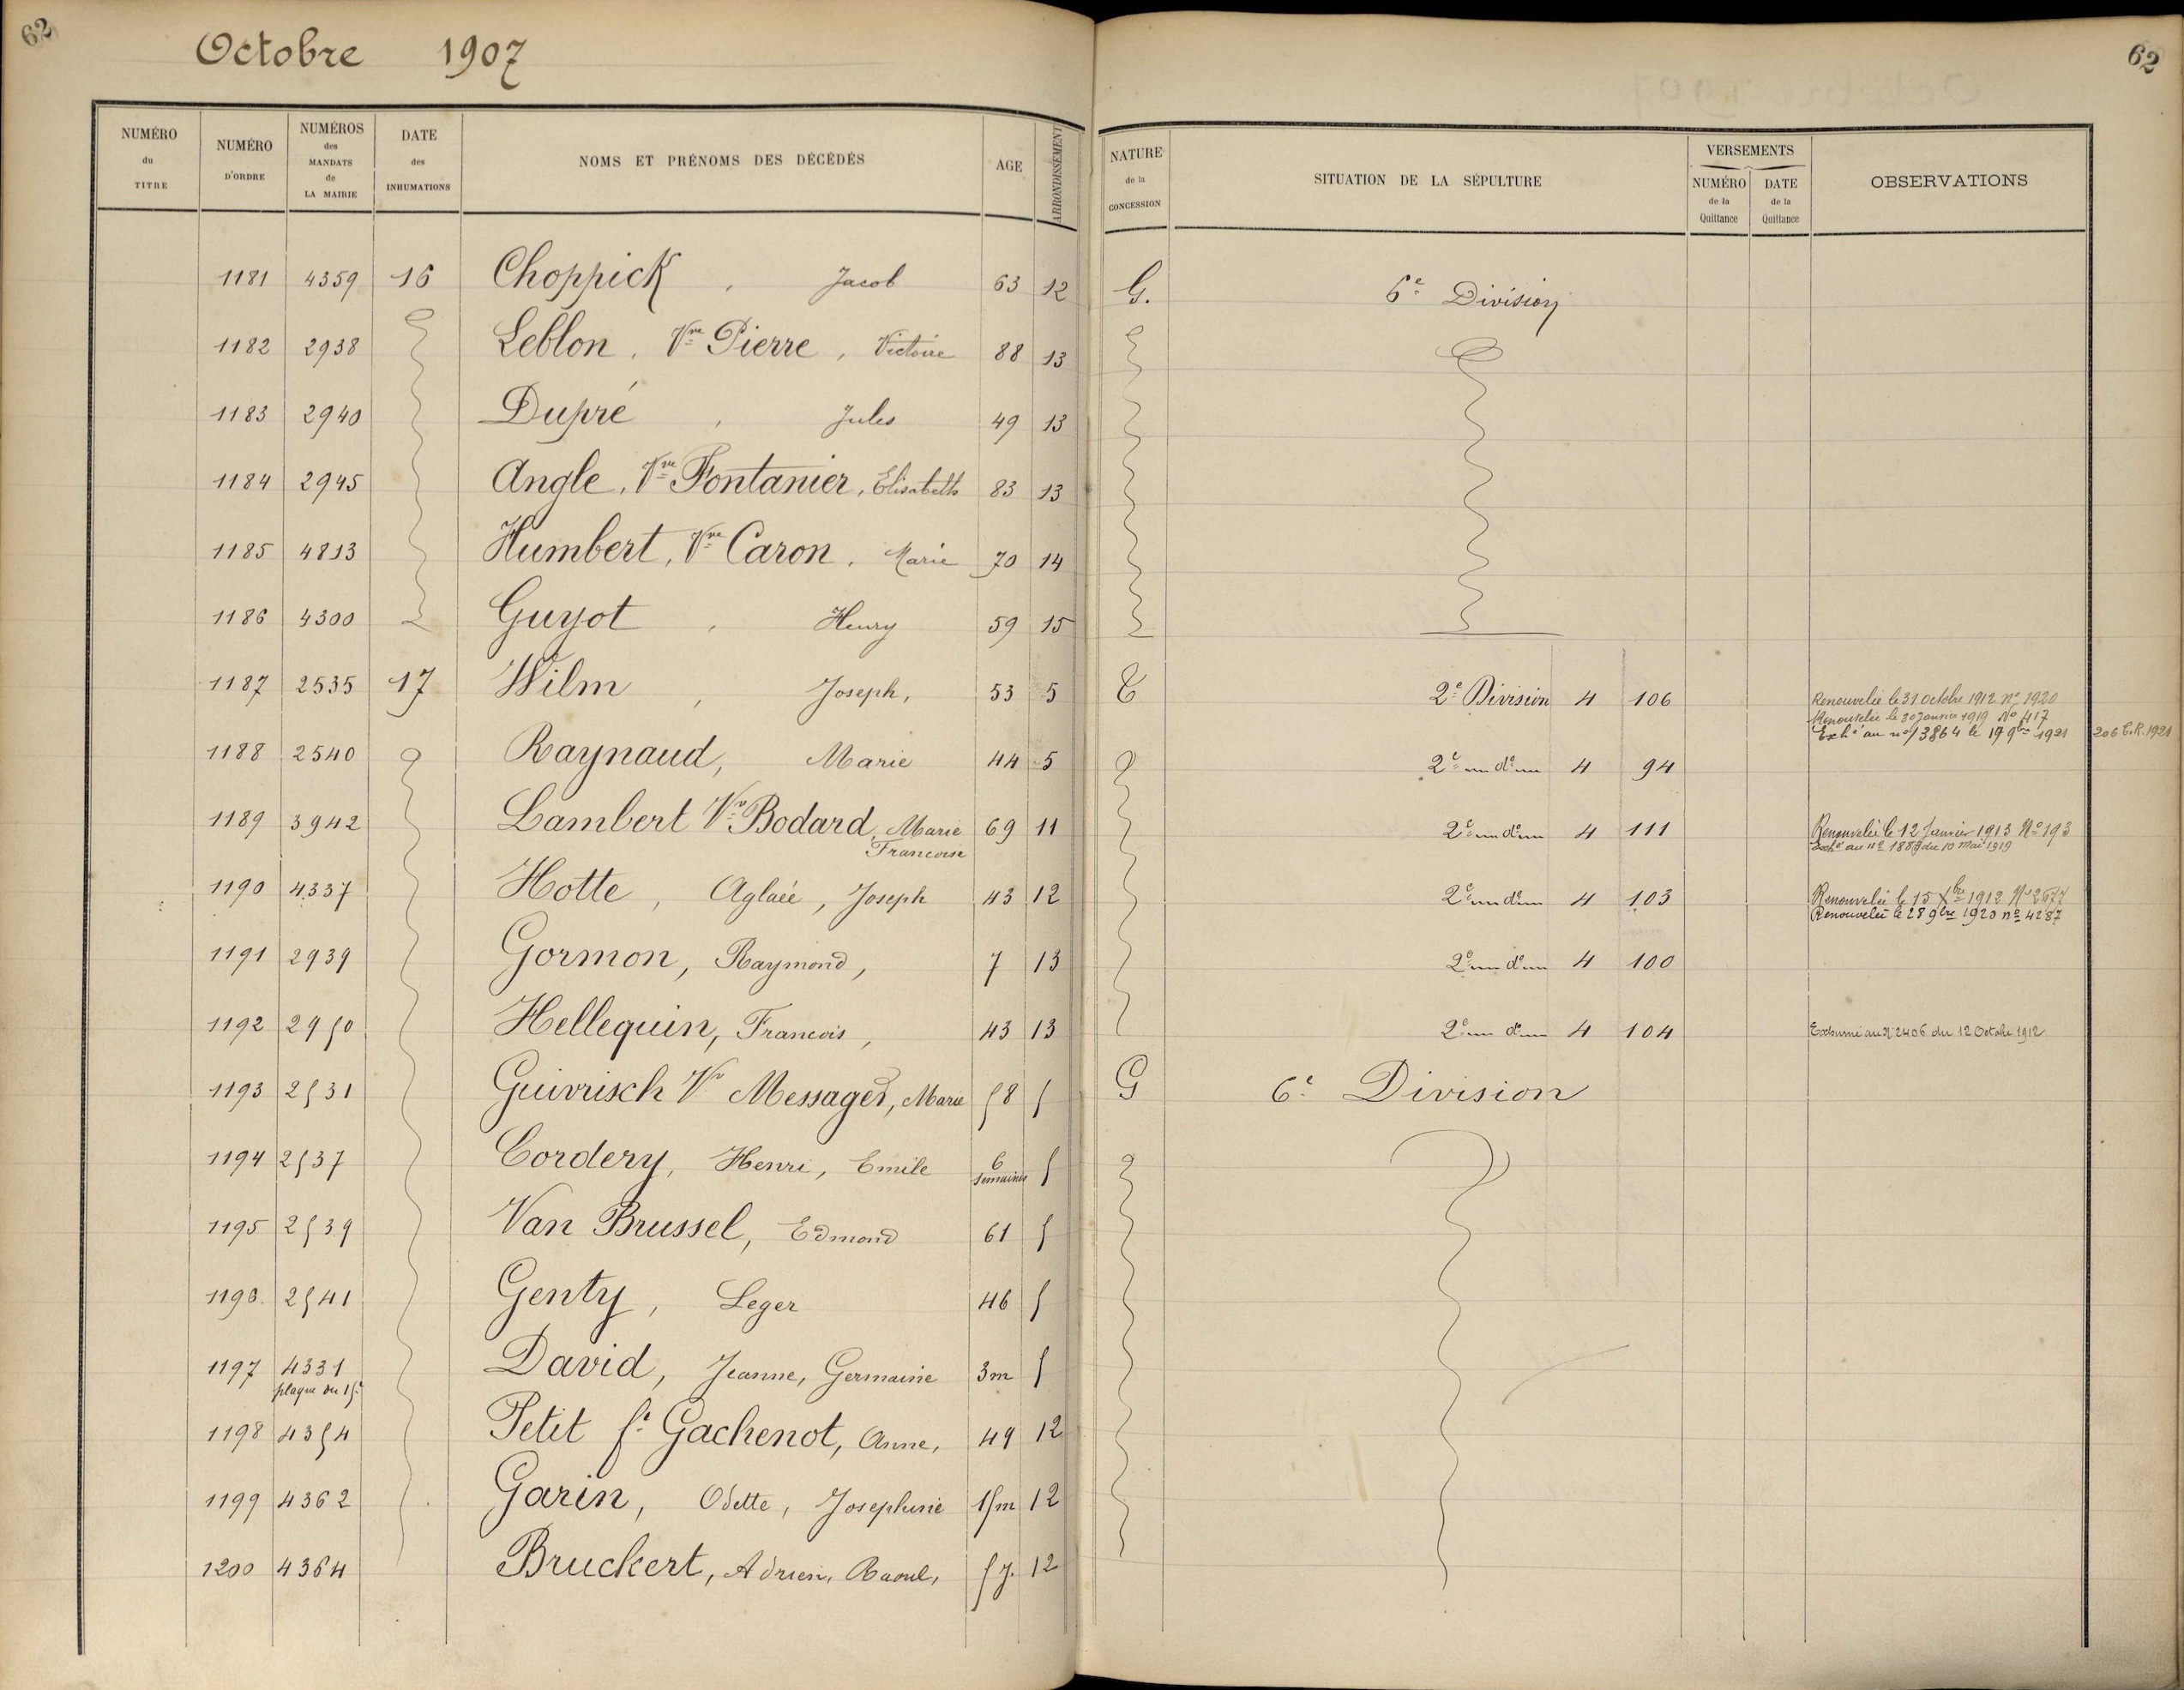 62
Octobre 1907
62
NUMÉRO du TITRE
NUMÉRO D'ORDRE
NUMÉROS des MANDATS de LA MAIRIE
DATE des INHUMATIONS
NOMS ET PRÉNOMS DES DÉCÉDÉS
AGE
ARRONDISSEMENT
NATURE de la CONCESSION
SITUATION DE LA SÉPULTURE
VERSEMENTS
NUMÉRO de la Quittance
DATE de la Quittance
OBSERVATIONS
1181 4359 16 Choppick, Jacob 63 12 G. 6e Division
1182 2938 Leblon, Vve Pierre, Victoire 88 13
1183 2940 Dupré, Jules 49 13
1184 2945 Angle, Vve Fontanier, Elisabeth 83 13
1185 4813 Humbert, Vve Caron, Marie 70 14
1186 4300 Guyot, Henry 59 15
1187 2535 17 Wilm, Joseph, 53 5 T 2e Division 4 106 Renouvelée le 31 Octobre 1912 No 1920
Renouvelée le 30 Janvier 1919 No 417
Exhé au no 13864 le 19 9bre 1921 206 C.R. 1921
1188 2540 Raynaud, Marie 44 5 2e do 4 94
1189 3942 Lambert Vve Bodard, Marie Francoise 69 11 2e do 4 111 Renouvelée le 12 Janvier 1913 No 193
Exhé au no 1889 du 10 Mai 1919
1190 4337 Hotte, Aglaée, Joseph 43 12 2e do 4 103 Renouvelée le 15 Xbre 1912 No 2677
Renouvelée le 28 9bre 1920 no 4287
1191 2939 Gormon, Raymond, 7 13 2e do 4 100
1192 2950 Hellequin, Francois, 43 13 2e do 4 104 Exhumé au No 2406 du 12 Octobre 1912
1193 2531 Guivrisch Ve Messager, Marie 58 5 G 6e Division
1194 2537 Cordery, Henri, Emile 6 semaines 5
1195 2539 Van Brussel, Edmond 61 5
1196 2541 Genty, Leger 46 5
1197 4331 David, Jeanne, Germaine 3m 5
plaque du 15e
1198 4354 Petit fe Gachenot, Anne, 49 12
1199 4362 Garin, Odette, Josephine 15m 12
1200 4364 Bruckert, Adrien, Raoul, 5 j. 12